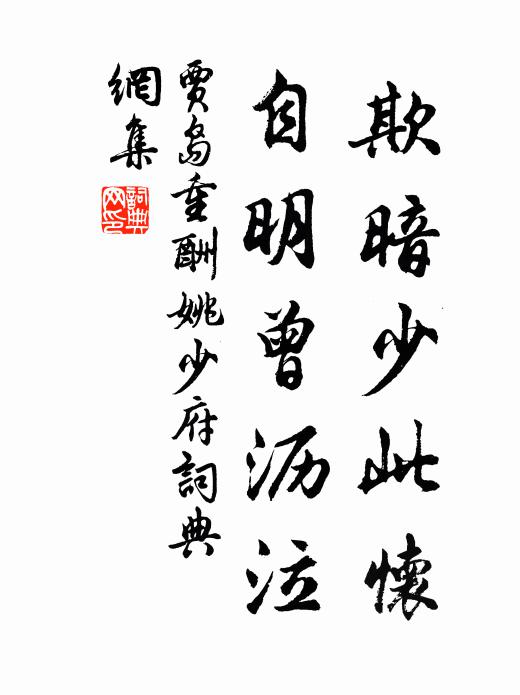 欺暗少此懷
自明曾沥泣
賈島重酬姚少府詞典
網集
詞典網印